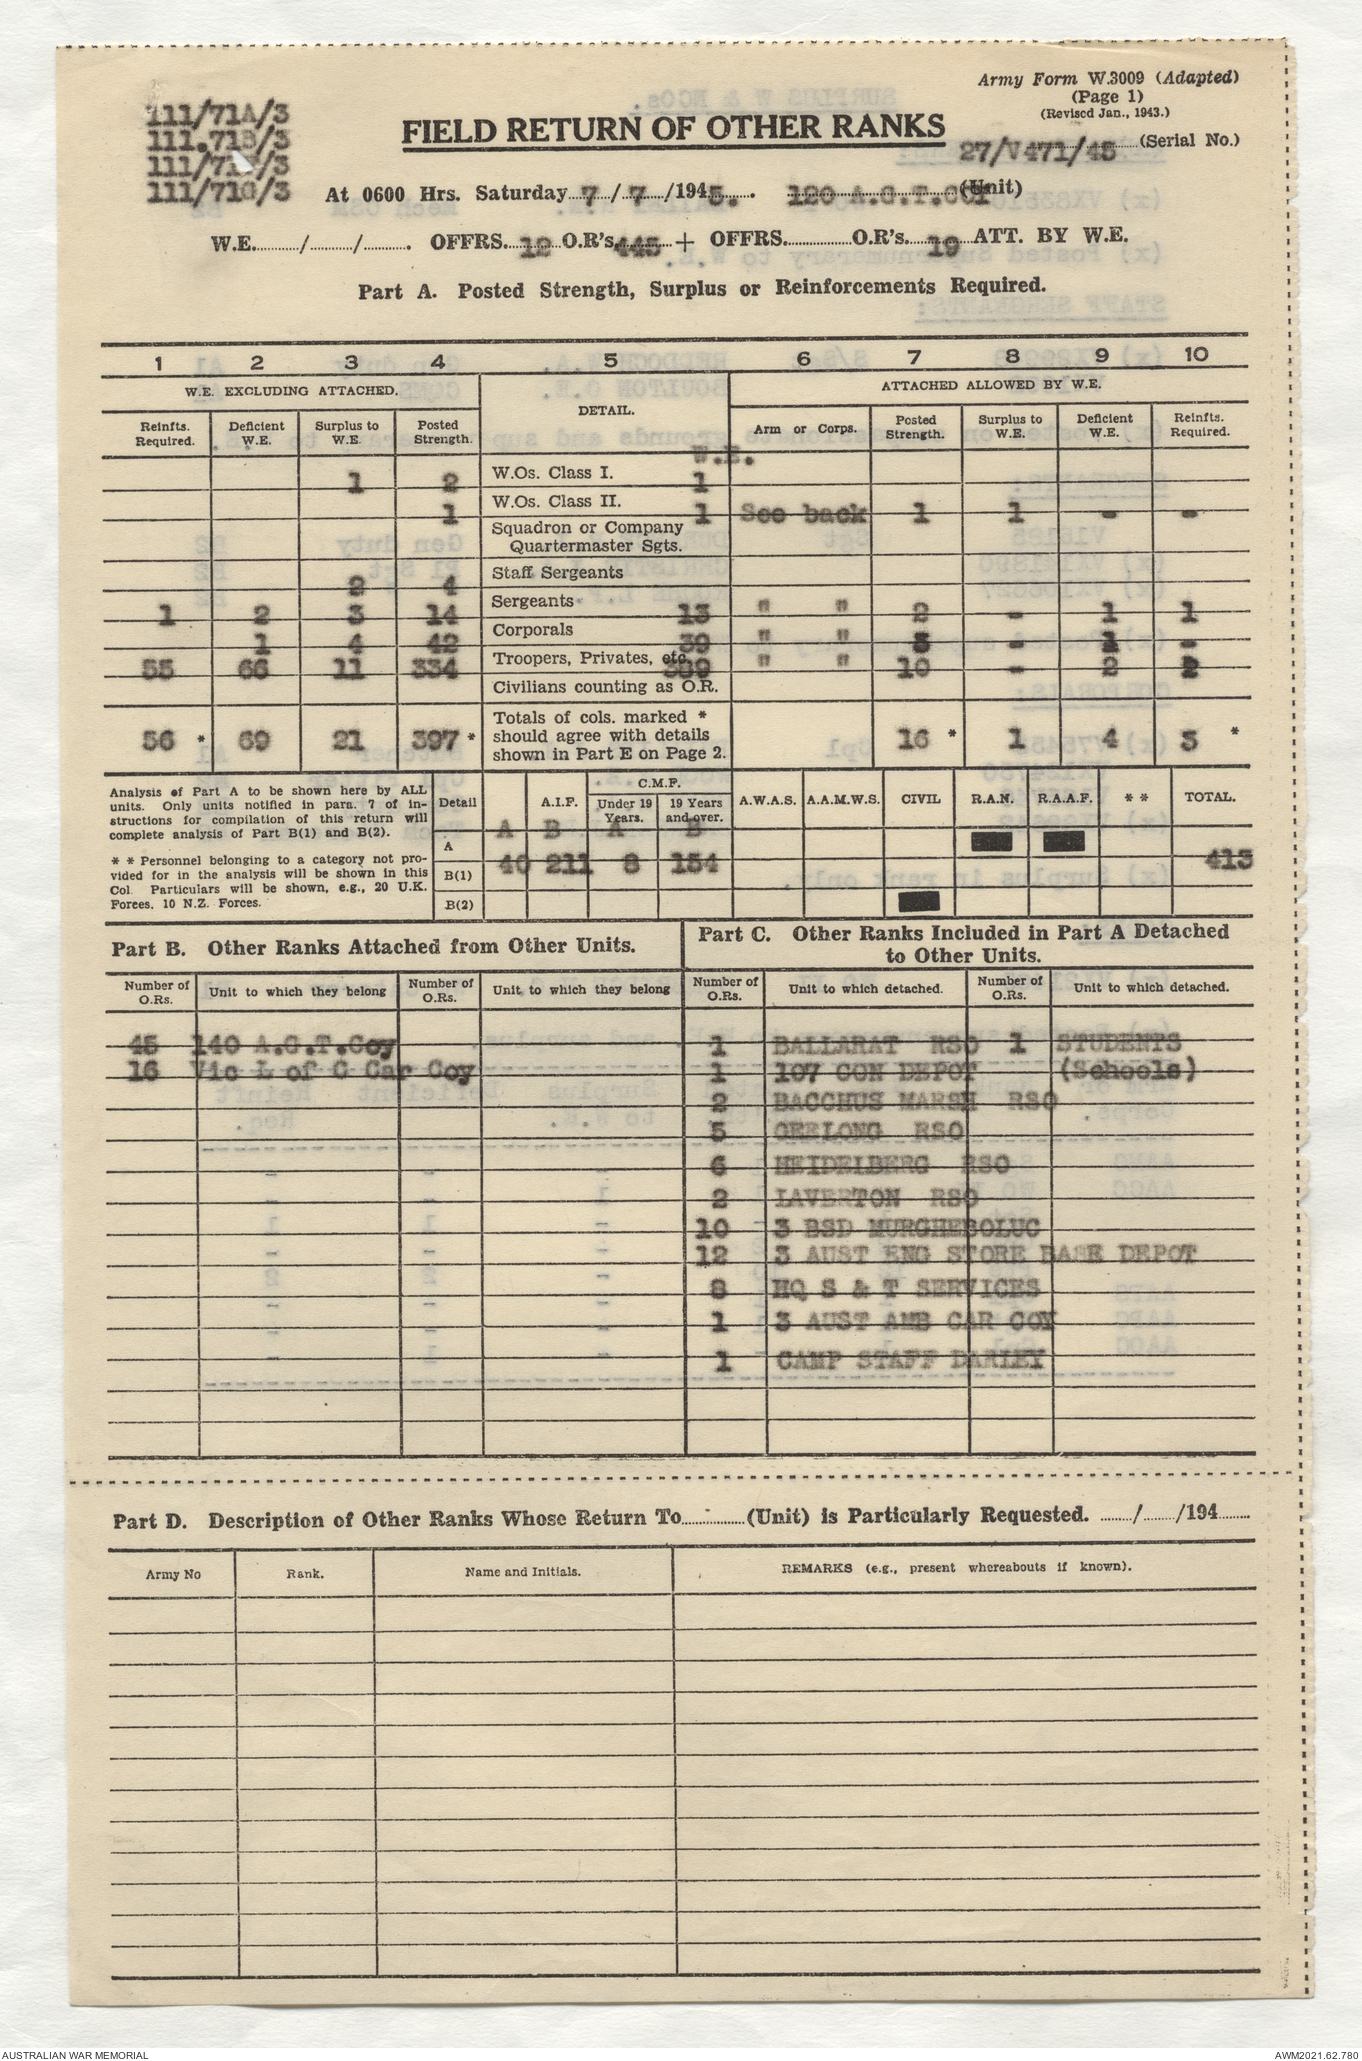 Army Form W.3009 (Adapted)
(Page 1)
(Revised Jan., 1943.)
111/71A/3
111.71B/3
111/71
/3
111/71G/3
FIELD RETURN OF OTHER RANKS
27/V471/45 (Serial No.)
At 0600 Hrs. Saturday 7 / 7 /1945. 120 A.G.T.COY (Unit)
W.E. / / . OFFRS. 12 O.R's 445 + OFFRS. O.R's. 19 ATT. BY W.E.
Part A. Posted Strength, Surplus or Reinforcements Required.
1 2 3 4 5 6 7 8 9 10
W.E. EXCLUDING ATTACHED. DETAIL. ATTACHED ALLOWED BY W.E.
Reinfts. Required. Deficient W.E. Surplus to W.E. Posted Strength. Arm or Corps. Posted Strength. Surplus to W.E. Deficient W.E. Reinfts. Required.
W.E.
1 2 W.Os. Class I. 1
1 W.Os. Class II. 1 See back 1 1 - -
Squadron or Company
Quartermaster Sgts.
2 4 Staff Sergeants
1 2 3 14 Sergeants 13 " " 2 - 1 1
1 4 42 Corporals 39 " " 3 - 1 -
55 66 11 334 Troopers, Privates, etc. 389 " " 10 - 2 2
Civilians counting as O.R.
56 * 69 21 397 * Totals of cols. marked * should agree with details shown in Part E on Page 2. 16 * 1 4 3 *
Analysis of Part A to be shown here by ALL
units. Only units notified in para. 7 of in-
structions for compilation of this return will
complete analysis of Part B(1) and B(2).
* * Personnel belonging to a category not pro-
vided for in the analysis will be shown in this
Col. Particulars will be shown, e.g., 20 U.K.
Forces, 10 N.Z. Forces.
Detail A.I.F. C.M.F. Under 19 Years. 19 Years and over. A.W.A.S. A.A.M.W.S. CIVIL R.A.N. R.A.A.F. * * TOTAL.
A B A B
A
B(1) 40 211 8 154 413
B(2)
Part B. Other Ranks Attached from Other Units.
Part C. Other Ranks Included in Part A Detached
to Other Units.
Number of O.Rs. Unit to which they belong Number of O.Rs. Unit to which they belong Number of O.Rs. Unit to which detached. Number of O.Rs. Unit to which detached.
45 140 A.G.T.Coy 1 BALLARAT RSO 1 STUDENTS
16 Vic L of C Car Coy 1 107 CON DEPOT (Schools)
2 BACCHUS MARSH RSO
5 GEELONG RSO
6 HEIDELBERG RSO
2 LAVERTON RSO
10 3 BSD MURGHEBOLUC
12 3 AUST ENG STORE BASE DEPOT
8 HQ S & T SERVICES
1 3 AUST AMB CAR COY
1 CAMP STAFF DARLEY
Part D. Description of Other Ranks Whose Return To (Unit) is Particularly Requested. / /194
Army No Rank. Name and Initials. REMARKS (e.g., present whereabouts if known).
AUSTRALIAN WAR MEMORIAL AWM2021.62.780